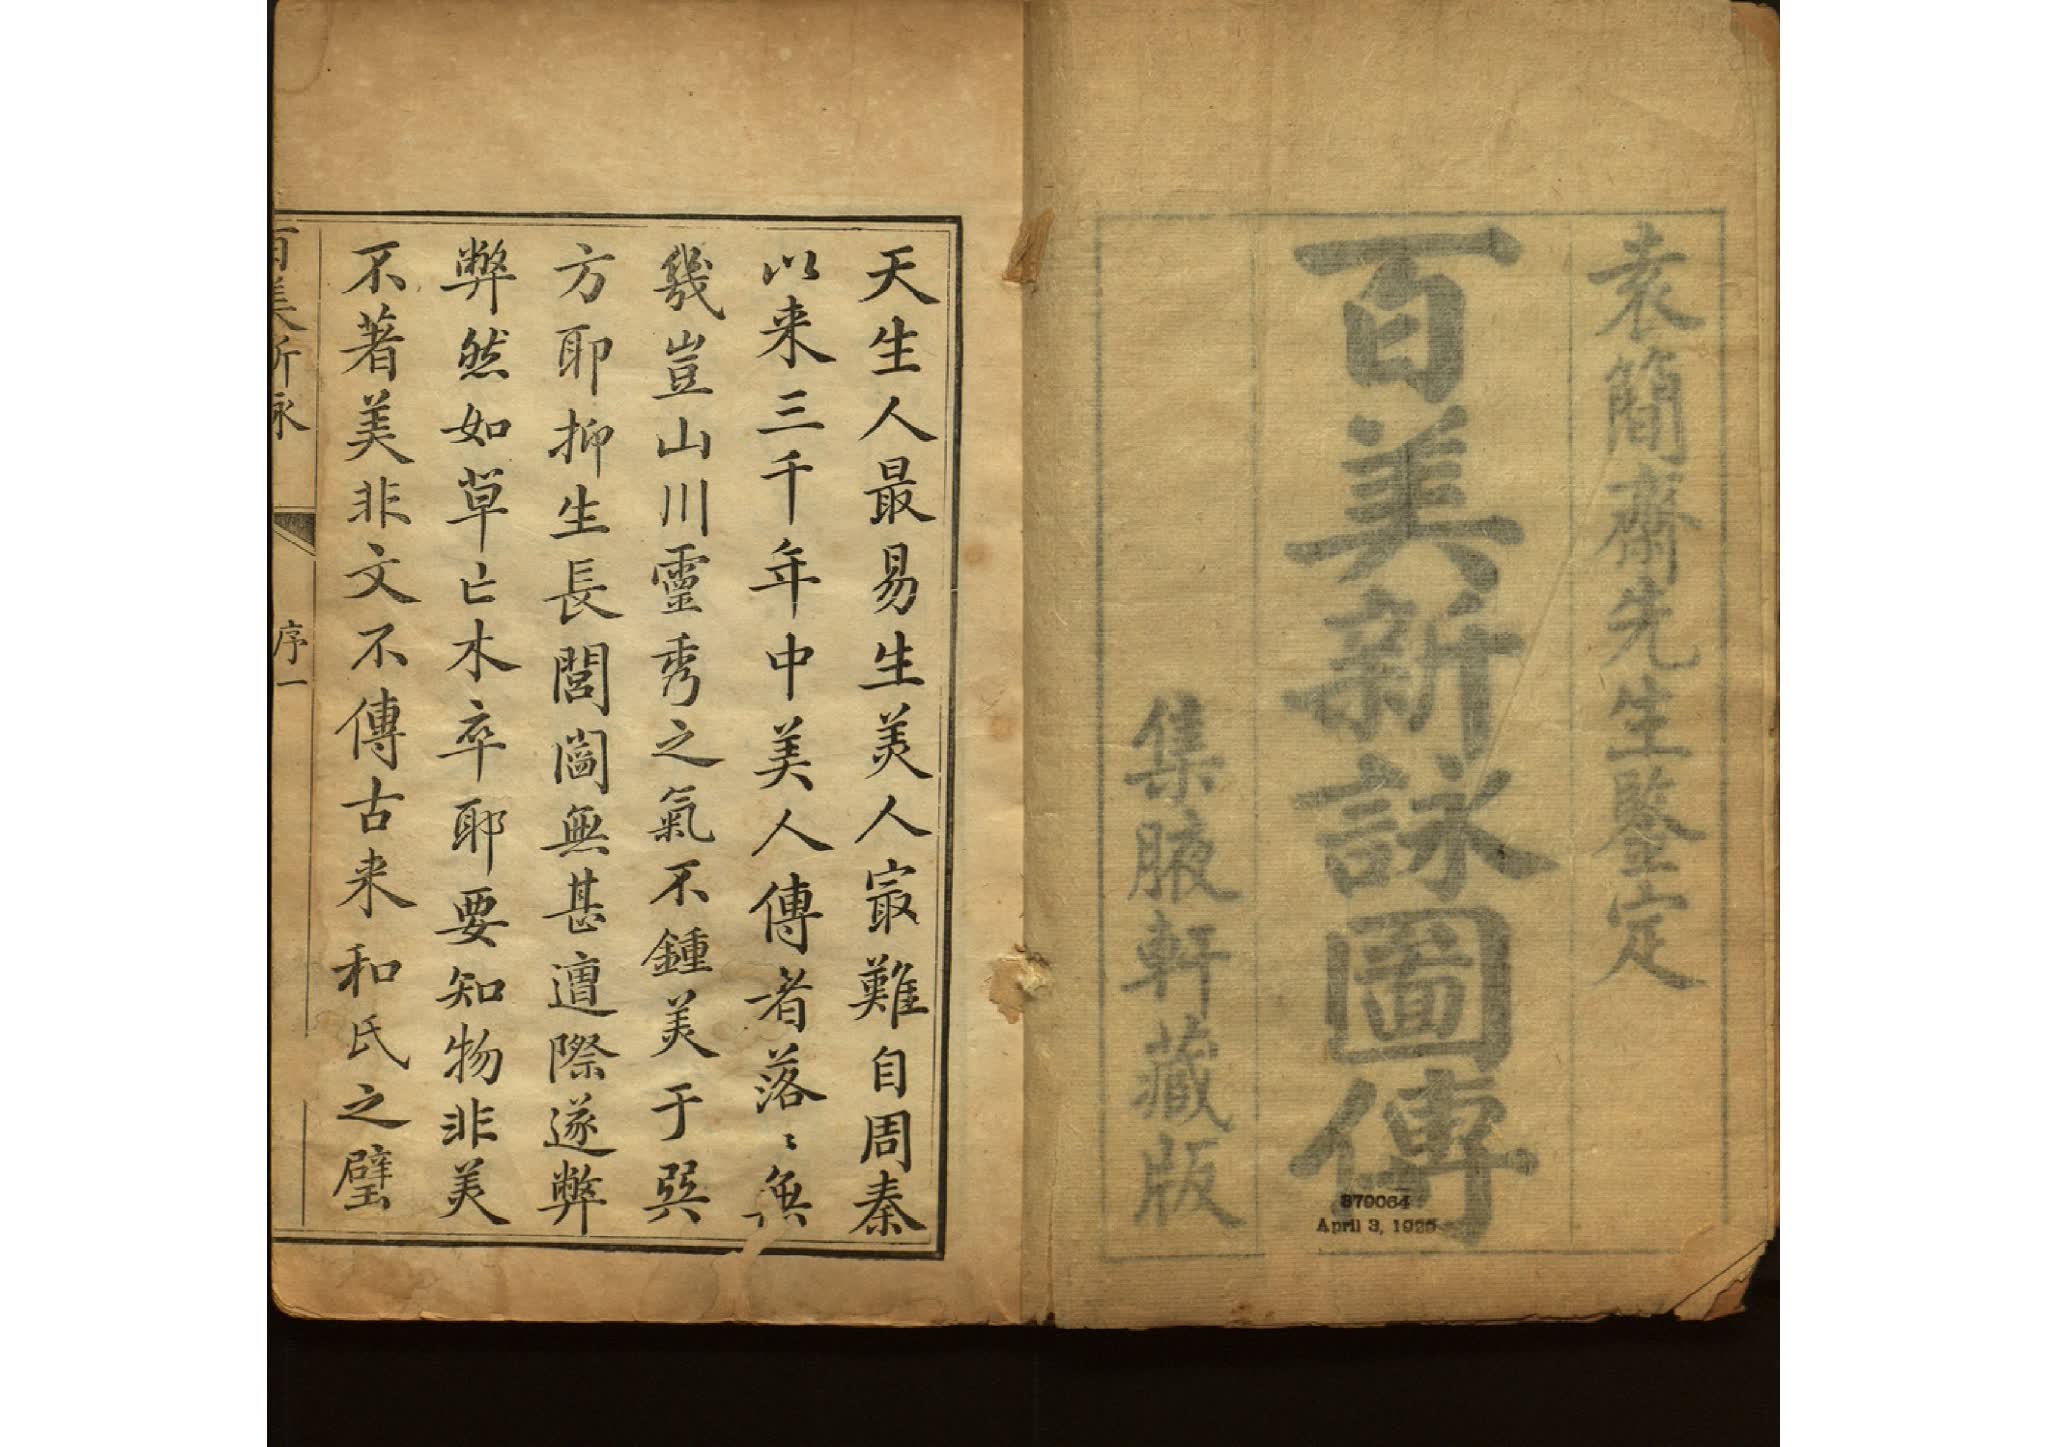 袁簡齋先生鑒定
百美新詠圖傳
集腋軒藏版
879064
April 3, 1925
天生人最易生美人寂難自周秦
以来三千年中美人傳者落〻無
幾豈山川靈秀之氣不鍾美于巽
方耶抑生長閭閻無甚遭際遂弊
弊然如草亡木卒耶要知物非美
不著美非文不傳古来和氏之璧
百美新詠
序一